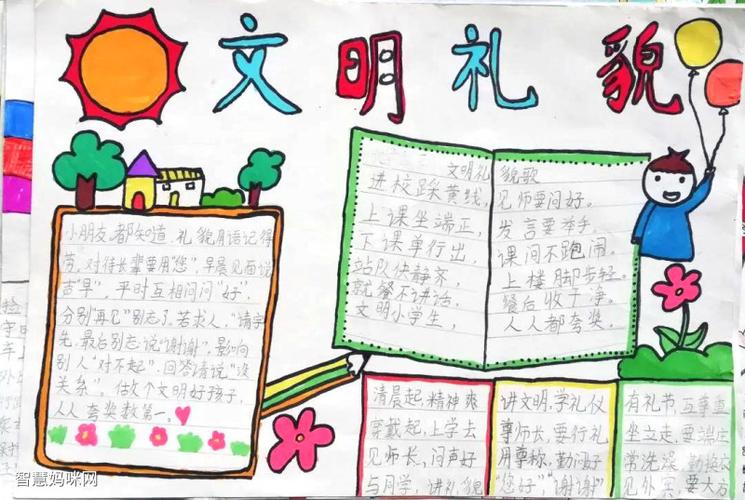 文明礼貌
小朋友,都知道,礼貌用语记得
劳,对待长辈要用"您",早晨见面说
声"早",平时互相问问"好",
分别"再见"别忘了,若求人,"请"字
先,最后别忘说"谢谢",影响
别人"对不起",回答请说"没
关系",做个文明好孩子,
人人夸奖数第一。
文明礼貌歌
进校踩黄线,
上课坐端正,
下课单行出,
站队快静齐,
就餐不讲话,
文明小学生,
见师要问好。
发言要举手,
课间不跑闹。
上楼脚步轻。
餐后收干净。
人人都夸奖。
清晨起,精神爽
穿戴起,上学去
见师长,问声好
与同学,讲礼貌
讲文明,学礼仪
尊师长,要行礼
用尊称,勤问好
"您好""谢谢"
有礼节,互尊重
坐立走,要端庄
常洗澡,勤换衣
见外宾,要大方
智慧妈咪网